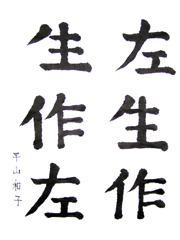 左生作
生作左
平山和子